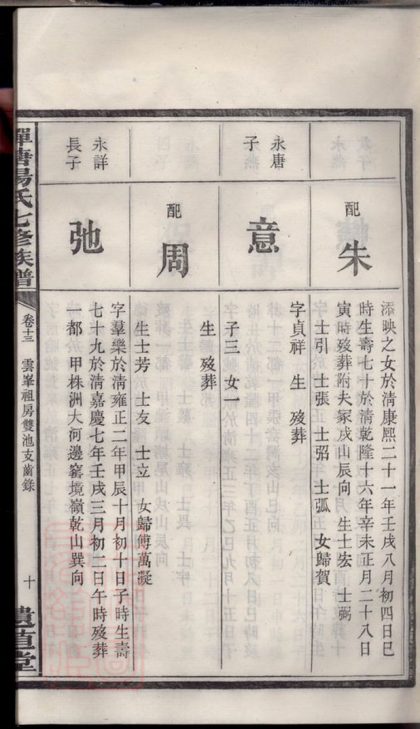 配
朱
添映之女於清康熙二十一年壬戌八月初四日巳
時生壽七十於清乾隆十六年辛未正月二十八日
寅時歿葬附夫冢戌山辰向　生士宏　士弼
士引　士張　士弨　士弧　女歸賀
永唐
子
意
字貞祥　生　歿葬
子三　女一
配
周
生　歿葬
生士芳　士友　士立　女歸傅萬凝
永詳
長子
弛
字羣樂於清雍正二年甲辰十月初十日子時生壽
七十九於清嘉慶七年壬戌三月初二日午時歿葬
一都　甲株洲大河邊窰境嶺乾山巽向
湯氏七修族譜
卷十三
雲峯祖房雙池支齒錄
十